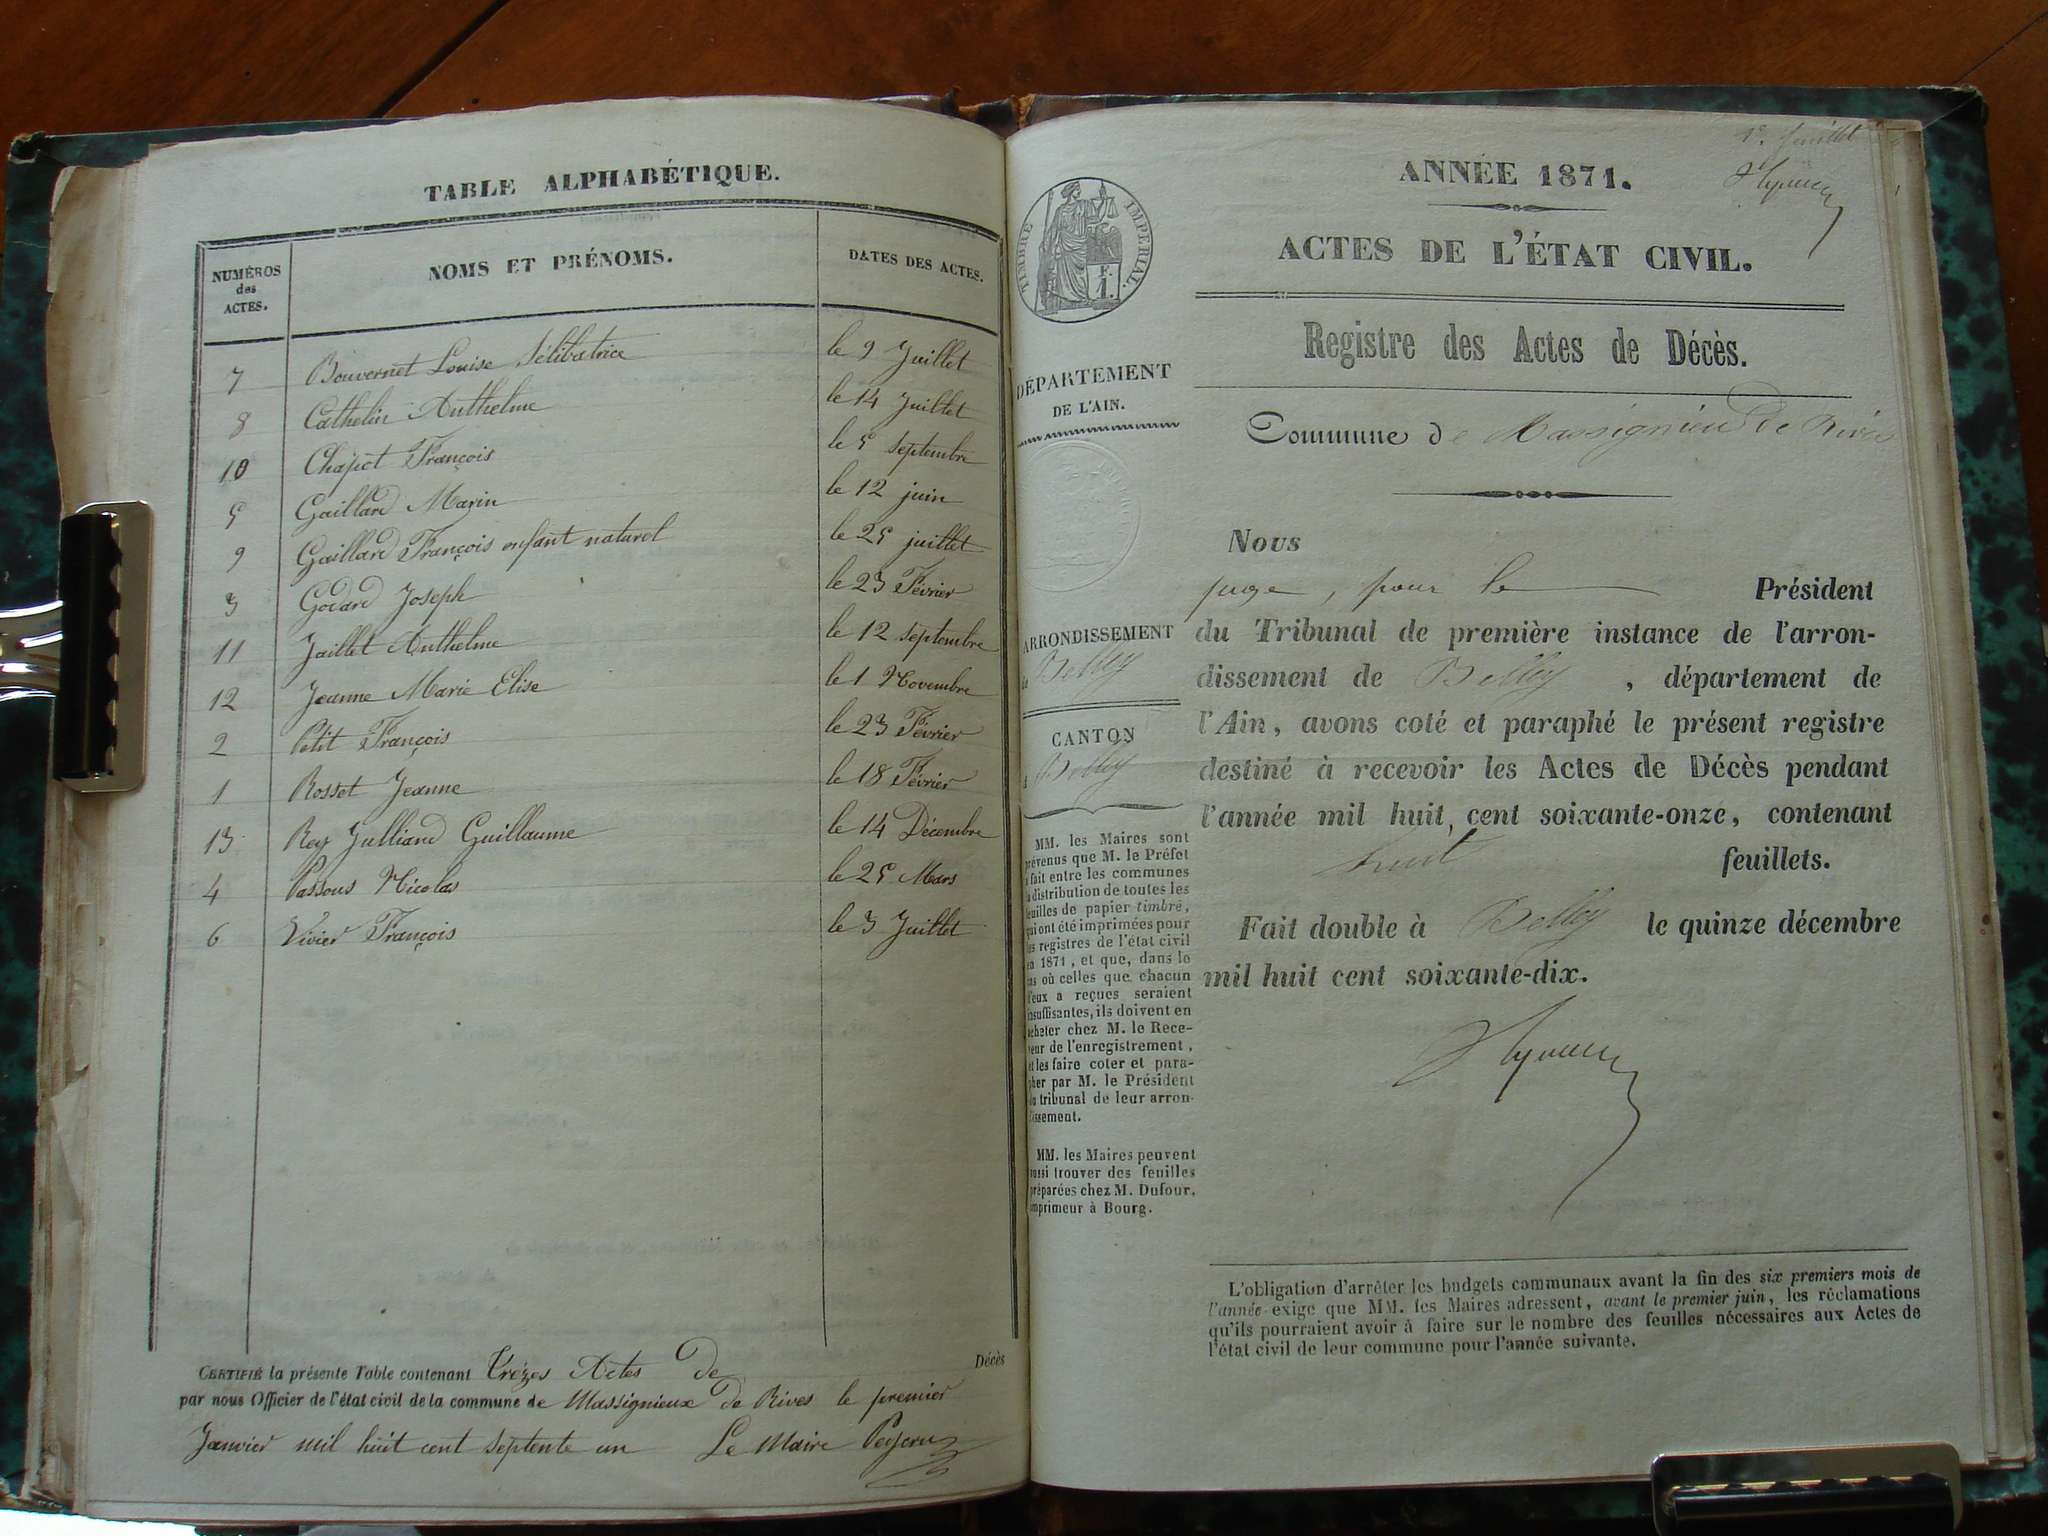 TABLE ALPHABÉTIQUE.
NUMÉROS des ACTES.
NOMS ET PRÉNOMS.
DATES DES ACTES.
7 Bouvernet Louise Sélibatrice le 9 Juillet
8 Cathelin Anthelme le 14 Juillet
10 Chapot François le 5 Septembre
5 Gaillard Marin le 12 juin
9 Gaillard François enfant naturel le 25 juillet
3 Godard Joseph le 23 Février
11 Jaillet Anthelme le 12 Septembre
12 Jeanne Marie Elise le 1 Novembre
2 Petit François le 23 Février
1 Rosset Jeanne le 18 Février
13 Rey Julliand Guillaume le 14 Décembre
4 Passous Nicolas le 25 Mars
6 Vivier François le 3 Juillet
CERTIFIÉ la présente Table contenant Trèzes Actes de Décès
par nous Officier de l'état civil de la commune de Massignieux de Rives le premier
Janvier mil huit cent septente un Le Maire
1er feuillet
ANNÉE 1871.
TIMBRE IMPÉRIAL.
F. 1.
ACTES DE L'ÉTAT CIVIL.
Registre des Actes de Décès.
Commune de Massignieu de Rives
DÉPARTEMENT
DE L'AIN.
ARRONDISSEMENT
de Belley
CANTON
d Belley
MM. les Maires sont
prévenus que M. le Préfet
a fait entre les communes
la distribution de toutes les
feuilles de papier timbré,
qui ont été imprimées pour
les registres de l'état civil
en 1871, et que, dans le
cas où celles que chacun
d'eux a reçues seraient
insuffisantes, ils doivent en
acheter chez M. le Rece-
veur de l'enregistrement,
et les faire coter et para-
pher par M. le Président
du tribunal de leur arron-
dissement.
MM. les Maires peuvent
aussi trouver des feuilles
préparées chez M. Dufour,
imprimeur à Bourg.
Nous
juge, pour le Président
du Tribunal de première instance de l'arron-
dissement de Belley, département de
l'Ain, avons coté et paraphé le présent registre
destiné à recevoir les Actes de Décès pendant
l'année mil huit cent soixante-onze, contenant
huit feuillets.
Fait double à Belley le quinze décembre
mil huit cent soixante-dix.
L'obligation d'arrêter les budgets communaux avant la fin des six premiers mois de
l'année exige que MM. les Maires adressent, avant le premier juin, les réclamations
qu'ils pourraient avoir à faire sur le nombre des feuilles nécessaires aux Actes de
l'état civil de leur commune pour l'année suivante.